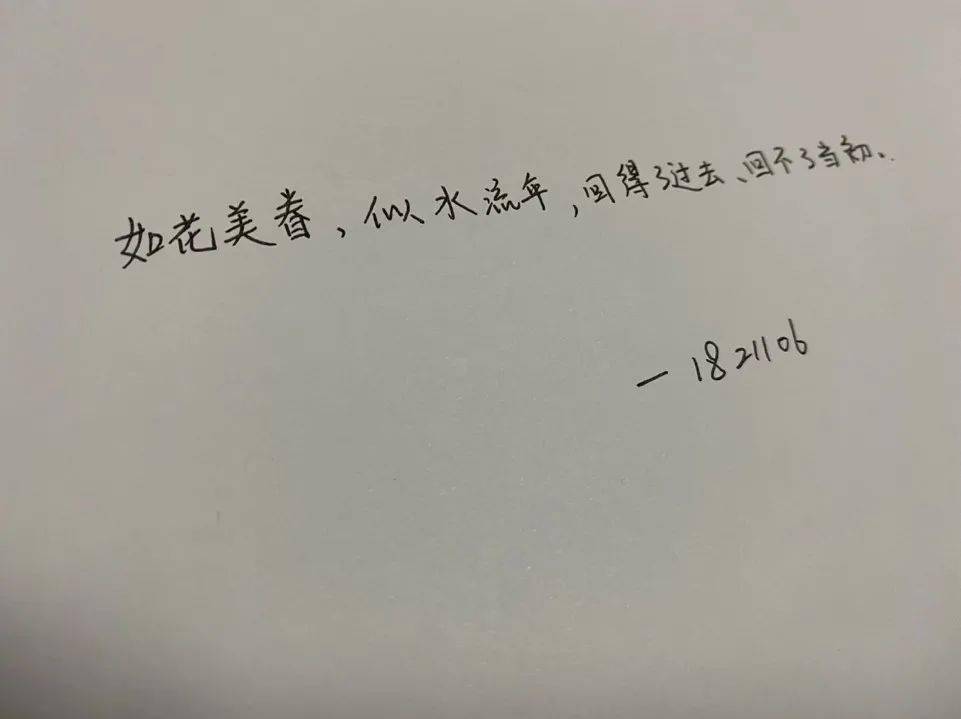 如花美眷，似水流年，回得了过去、回不了当初..
— 1821106